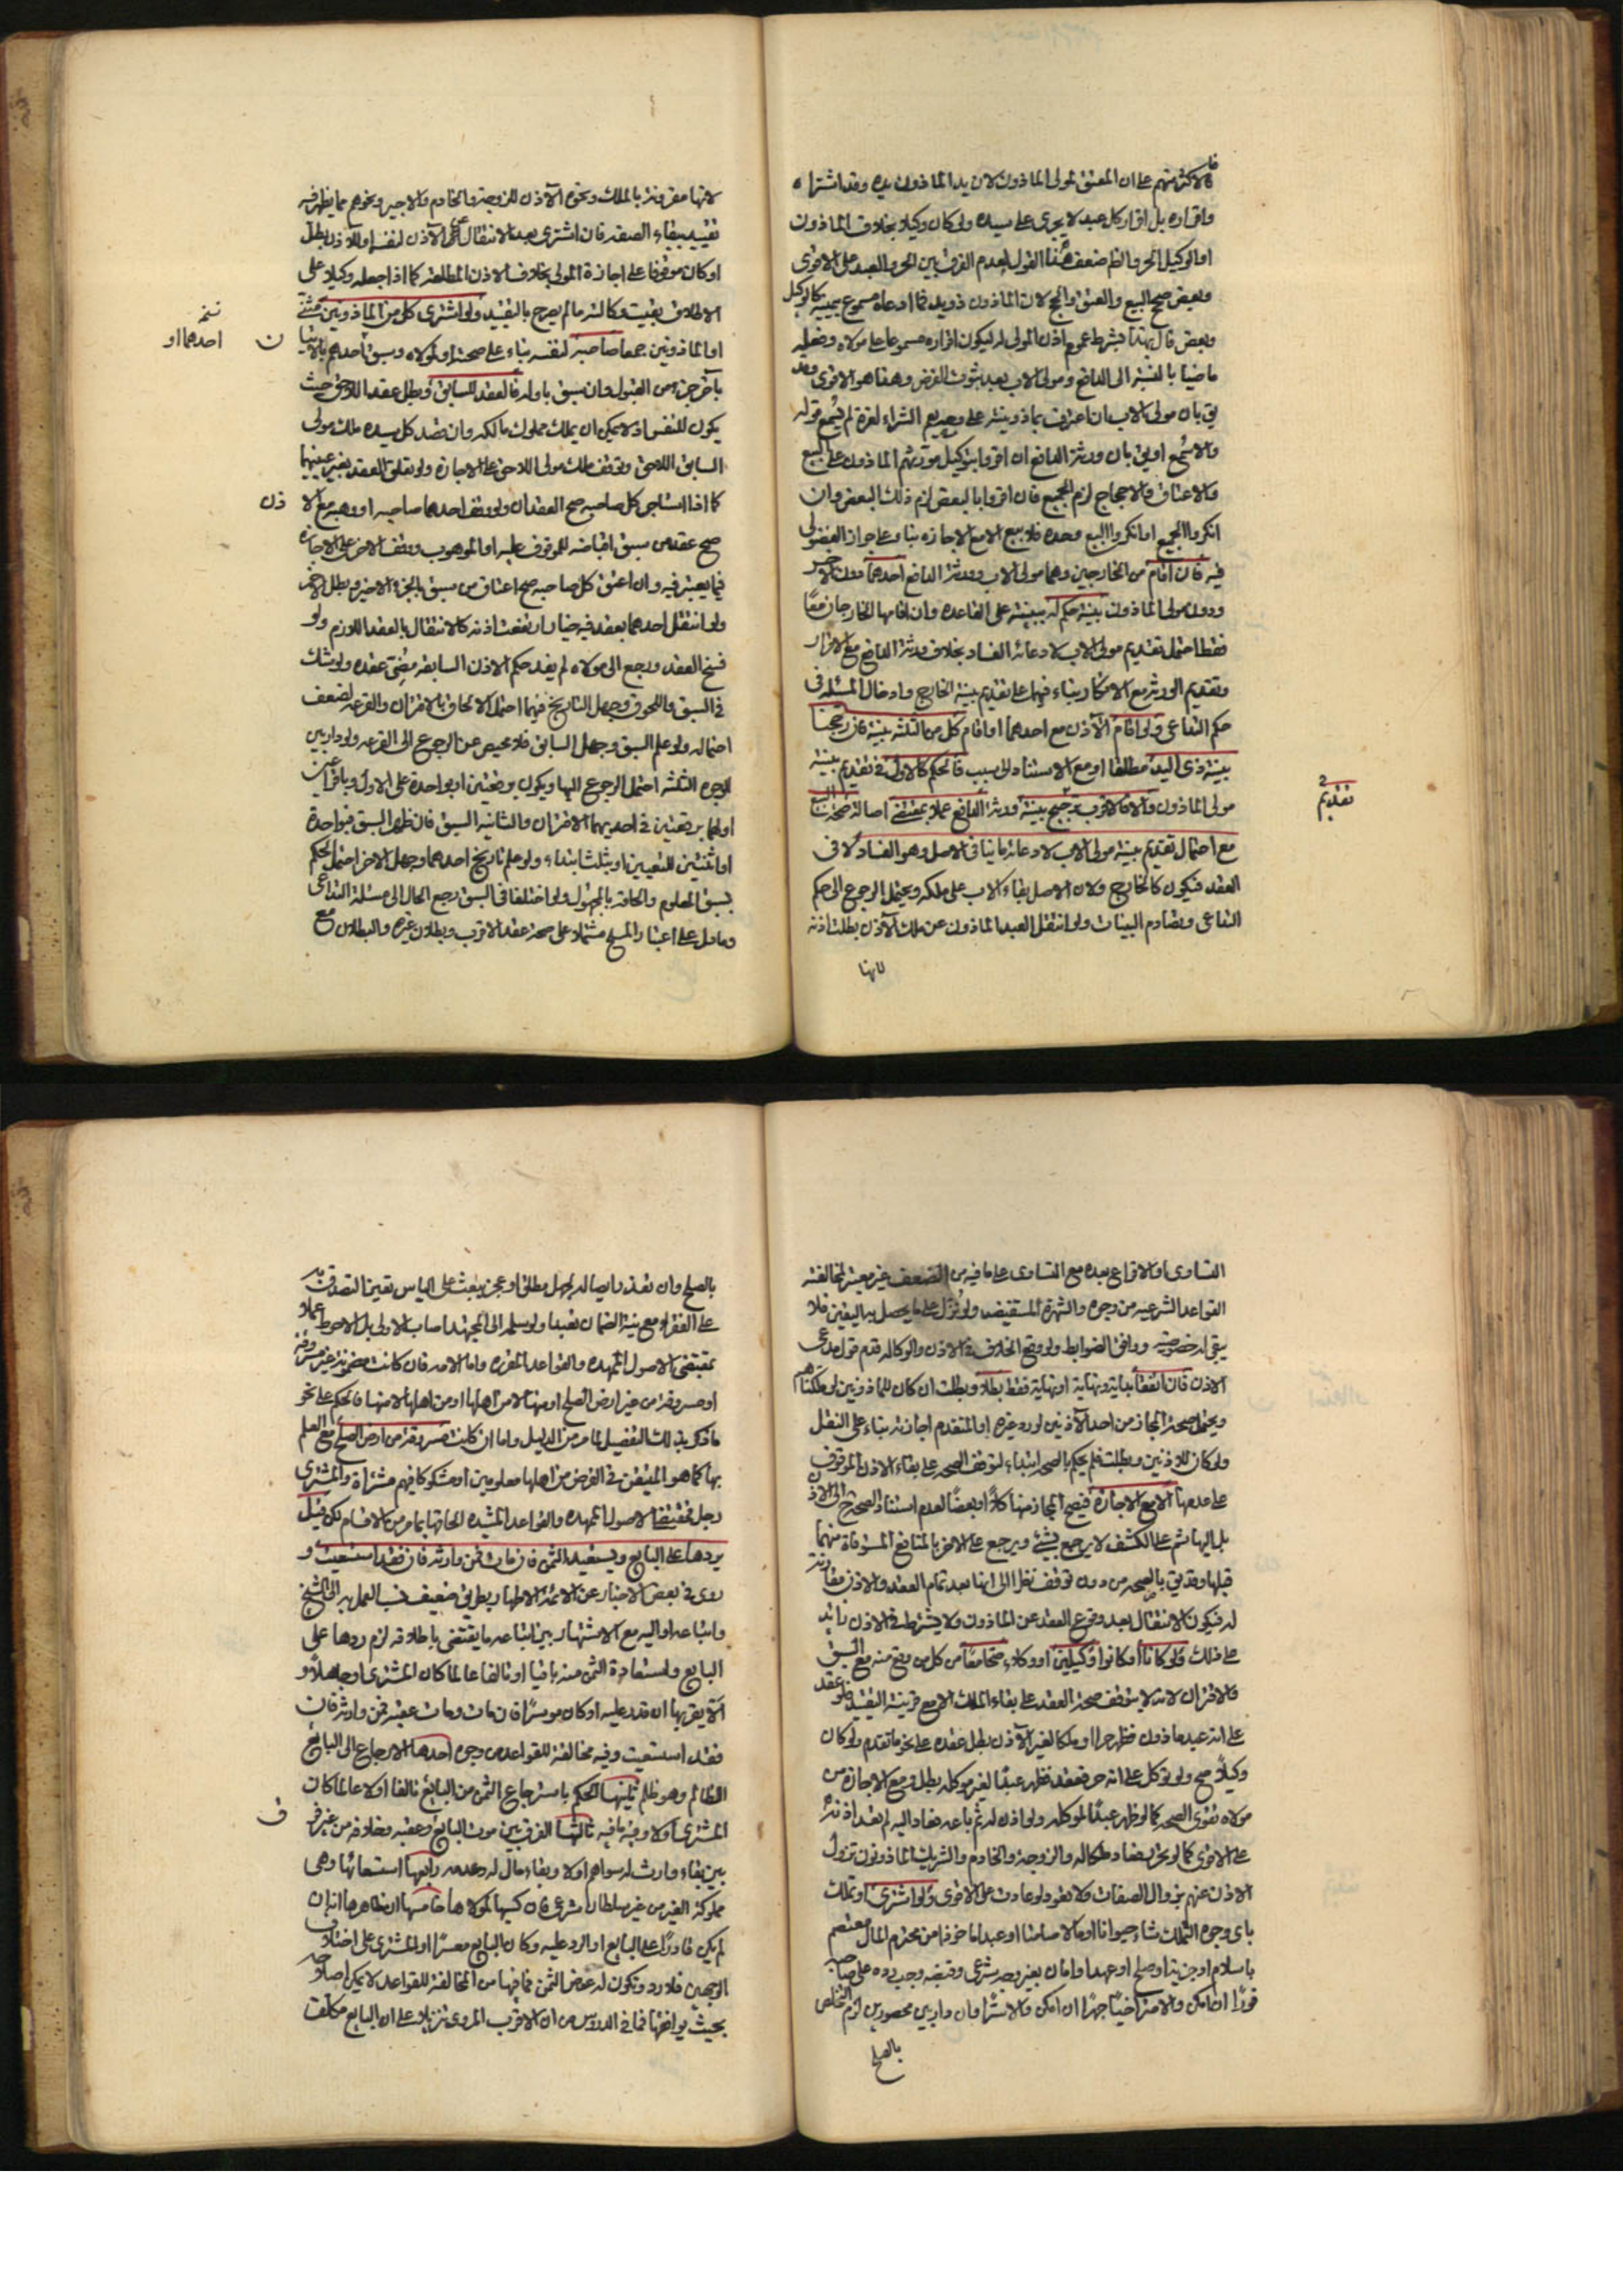 فالاكثر منهم على ان المعتق لمولى الماذون لان يد الماذون يده وقد اشتراه
واقراره بل اقرار كل عبد لا يجرى على سيده ولو كان وكيلا بخلاف الماذون
او الوكيل الحر والظ ضعف هذا القول لعدم الفرق بين الحر والعبد على الاقوى
وبعض صحح البيع والعتق والحج لان الماذون ذو يد فما ادعاه مسموع بيمينه كالوكيل
وبعض قال بهذا بشرط عموم اذن المولى له ليكون اقراره مسموعا على مولاه وفعله
ماضيا بالنسبة الى الدافع ومولى الاب بعد ثبوت الفرض وهذا هو الاقوى وقد
يق بان مولى الاب ان اعترف بماذونيته على وجه يعم الشراء لغيره لم يسمع قوله
والا سمع او يق بان ورثة الدافع ان اقروا بتوكيل مورثهم الماذون على البيع
والاعتاق والاحجاج لزم الجميع فان اقروا بالبعض لزم ذلك البعض وان
انكروا الجميع او انكروا البيع وحده فلا بيع الا مع الاجازه بناء على جواز الفضولى
فيه فان اقام من الخارجين وهما مولى الاب وورثة الدافع احدهما دون الاخر
ودون مولى الماذون بينة حكم له ببينته على القاعده وان اقامها الخارجان معا
فقط احتمل تقديم مولى الاب لادعائه الفساد بخلاف ورثة الدافع مع الاقرار
وتقديم الورثة مع الانكار بناء فيهما على تقديم بينة الخارج وادخال المسئلة فى
حكم التداعى ولو اقام الآذن مع احدهما او اقام كل من الثلثة بينة فان رجحنا
بينة ذى اليد مطلقا او مع الاستناد الى سبب فالحكم كالاول فى تقديم بينة
مولى الماذون والا فالاقرب ترجيح بينة ورثة الدافع عملا بمقتضى اصالة صحة
مع احتمال تقديم بينة مولى الاب لادعائه ما ينافى الاصل وهو الفساد لا فى
العقد فيكون كالخارج ولان الاصل بقاء الاب على ملكه ويحتمل الرجوع الى حكم
التداعى وتصادم البينات ولو انتقل العبد الماذون عن ملك الآذن بطلت اذنه
لانها
تقديم
لانها مقرونة بالملك ونحوه الآذن للزوجة والخادم والاجير ونحوهم مما يظهر فيه
تقييد ببقاء الصفة فان اشترى بعد الانتقال عن الآذن لنفسه او للآذن بطل
او كان موقوفا على اجازة المولى بخلاف الاذن المطلقه كما اذا جعله وكيلا على
الاطلاق بقيت وكالته ما لم يصرح بالتقييد ولو اشترى كل من الماذونين
او الماذونين جمعا صاحبه لنفسه بناء على صحته او لمولاه وسبق احدهم بالاتيان
بآخر جزء من القبول وان سبق باوله فالعقد للسابق وبطل عقد اللاحق حيث
يكون للنفس اذ لا يمكن ان يملك مملوك مالكه وان قصد كل سيده ملك مولى
السابق اللاحق وتوقف ملك مولى اللاحق على الاجازه ولو تعلق العقد بغير عينيهما
كما اذا استاجر كل صاحبه صح العقدان ولو وقف احدهما صاحبه او وهبه مع الا
ذن
صح عقد من سبق اقباضه للموقوف عليه او الموهوب ووقف الاخر على الاجازه
فيما يعتبر فيه وان اعتق كل صاحبه صح اعتاق من سبق بالجزء الاخير وبطل الاخر
ولو انتقل احدهما بعقد فيه خيار ارتفعت اذنه كالانتقال بالعقد اللازم ولو
فسخ العقد ورجع الى مولاه لم يفد حكم الاذن السابقه مضى عقده ولو شك
فى السبق واللحوق وجهل التاريخ فيهما احتمل الالحاق بالاقتران والقرعه لضعف
احتماله ولو علم السبق وجهل السابق فلا محيص عن الرجوع الى القرعه ولو دار بين
الوجوه الثلثة احتمل الرجوع اليها ويكون برقعتين او بواحدة على الاول وباقراعين
اولهما برقعتين فى احديهما الاقتران والثانيه السبق فان ظهر السبق فبواحدة
او اثنتين للتعيين او بثلث ابتداء ولو علم تاريخ احدهما وجهل الاخر احتمل الحكم
بسبق المعلوم والحاقه بالمجهول ولو اختلفا فى السبق رجع الحال الى مسئلة التداعى
وما دل على اعتبار المسح مشتملا على صحة عقد الاقرب وبطلان غيره والبطلان مع
نسخه
احدهما او
التساوى او الاقراع بعده مع التساوى على ما فيه من الضعف غير معتبر لمخالفته
القواعد الشرعيه من وجوه والشهرة المستفيضه ولو نزل على ما يحصل به اليقين فلا
يبقى له خصوصيه ووافق الضوابط ولو وقع الخلاف فى الاذن والوكاله قدم قول مدعى
الاذن فان اتفقا بداية ونهاية او نهاية فقط بطلا وبطلت ان كان للماذونين
ويحتمل صحة المجاز من احد الآذنين لو رد غيره او المتقدم اجازته بناء على النقل
ولو كان للآذنين وبطلت فلم يحكم بالصحه ابتداء لتوقف الصحه على بقاء الاذن الموقوف
على عدمها الا مع الاجازة فيصح المجاز منها كلا او بعضا لعدم استناد الصحه الى الاذن
بل اليها ثم على الكشف لا يرجع بشيء ويرجع على الاخر بالمنافع المستوفاة منهما
قبلها وقد يق بالصحه من دون توقف نظرا الى انها بعد تمام العقد والاذن مقارنة
له فيكون الانتقال بعد وقوع العقد عن الماذون ولا يشترط فى الاذن زائد
على ذلك ولو كانا او كانوا وكيلين او وكلاء صحا معا من كل من وقع منه مع السبق
والاقتران لانه لا يتوقف صحة العقد على بقاء الملك الا مع قرينة التقييد فلو عقد
على انه عبد ماذون فظهر حرا او ملكا لغير الآذن بطل عقده على نحو ما تقدم ولو كان
وكيلا صح ولو توكل على انه حر فعقد فظهر عبدا لغير موكله بطل ومع الاجازه من
مولاه تقوى الصحه كما لو ظهر عبدا لموكله ولو اذن له ثم باعه فعاد اليه لم تعد اذنه
على الاقوى كما لو تحرر فعاد والزوجة والخادم والشريك الماذونون تزول
الاذن عنهم بزوال الصفات ولا تعود لو عادت على الاقوى ولو اشترى او تملك
باى وجوه التملك شاء حيوانا او مالا صامتا او عبدا ماخوذا من محترم المال معتصم
باسلام او جزية او صلح او عهد او امان بغير وجه شرعى وقبضه وجب رده على صاحبه
فورا ان امكن والا فسرا خفيا جهرا ان امكن والا سترا فان دار بين محصورين لزم التخلص
بالصلح
بالصلح وان تعذر ايصاله لجهل مطلق او عجز يبعث على الياس تعين التصدق به
على الفقراء مع نية الضمان تعبدا ولو سلمه الى المجتهد اصاب الاولى بل الاحوط عملا
بمقتضى الاصول الممهده والقواعد المقرره واما الامه فان كانت مضمونة غير مسروقة
او مسروقة من غير ارض الصلح او منها لا من اهلها او من اهلها لا منها فالحكم على نحو
ما ذكر بذلك التفصيل لما مر من الدليل واما ان كانت مسروقة من ارض الصلح مع العلم
بها كما هو المتيقن فى الفرض من اهلها معلومين او مشكوكا فيهم مشتراة والمشترى
رجل فمقتضى الاصول الممهده والقواعد المشيده الحاقها بما مر من الاقسام لكن قيل
يردها على البايع ويستعيد الثمن فان مات فمن وارثه فان فقد استسعيت و
روى فى بعض الاخبار عن الائمة الاطهار بطريق ضعيف نسب العمل به الى الشيخ
واتباعه او اليه مع الاشتهار بين اتباعه ما يقتضى باطلاقه لزوم ردها على
البايع واستعادة الثمن منه باقيا او تالفا عالما كان المشترى او جاهلا و
الا يقربها ان قدر عليه او كان موسرا فان مات ومات عقبه فمن وارثه فان
فقد استسعيت وفيه مخالفة للقواعد من وجوه احدها الارجاع الى البايع
الظالم وهو ظلم ثانيها الحكم باسترجاع الثمن من البايع تالفا اولا عالما كان
المشترى اولا وفيه ما فيه ثالثها الفرق بين موت البايع وعقبه وخلافه من غير فرق
بين بقاء وارث له سواهم اولا وبقاء مال له وعدمه رابعها استسعائها وهى
مملوكة الغير من غير سلطان شرعى فان كسبها لمولاها خامسها ان ظاهرها انه ان
لم يكن قادرا على البايع او الرد عليه وكان البايع معسرا او المشترى على اختلاف
الوجهين فلا رد وتكون له عوض الثمن فما فيها من المخالفة للقواعد لا يمكن اصلاحه
بحيث يوافقها فما فى الدروس من ان الاقرب المروى تنزيلا على ان البايع مكلف